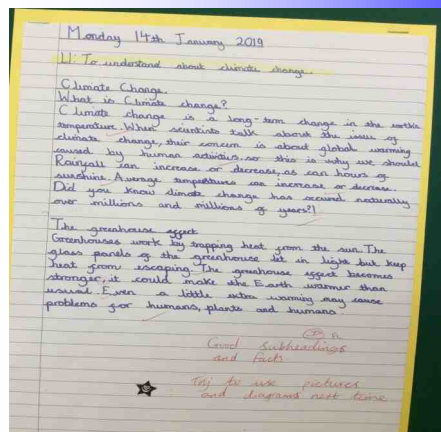 Monday 14th January 2019
LI: To understand about climate change.
Climate Change.
What is Climate change?
Climate change is a long-term change in the earth's
temperature. When scientists talk about the issue of
climate change, their concern is about global warming
caused by human activities, so this is why we should
Rainfall can increase or decrease, as can hours of
sunshine. Average temperatures can increase or decrease.
Did you know climate change has occured naturally
over millions and millions of years?!
The greenhouse effect
Greenhouses work by trapping heat from the sun. The
glass panels of the greenhouse let in light but keep
heat from escaping. The greenhouse effect becomes
stronger, it could make the Earth warmer than
usual. Even a little extra warming may cause
problems for humans, plants and humans.
Good subheadings
and facts
Try to use pictures
and diagrams next time